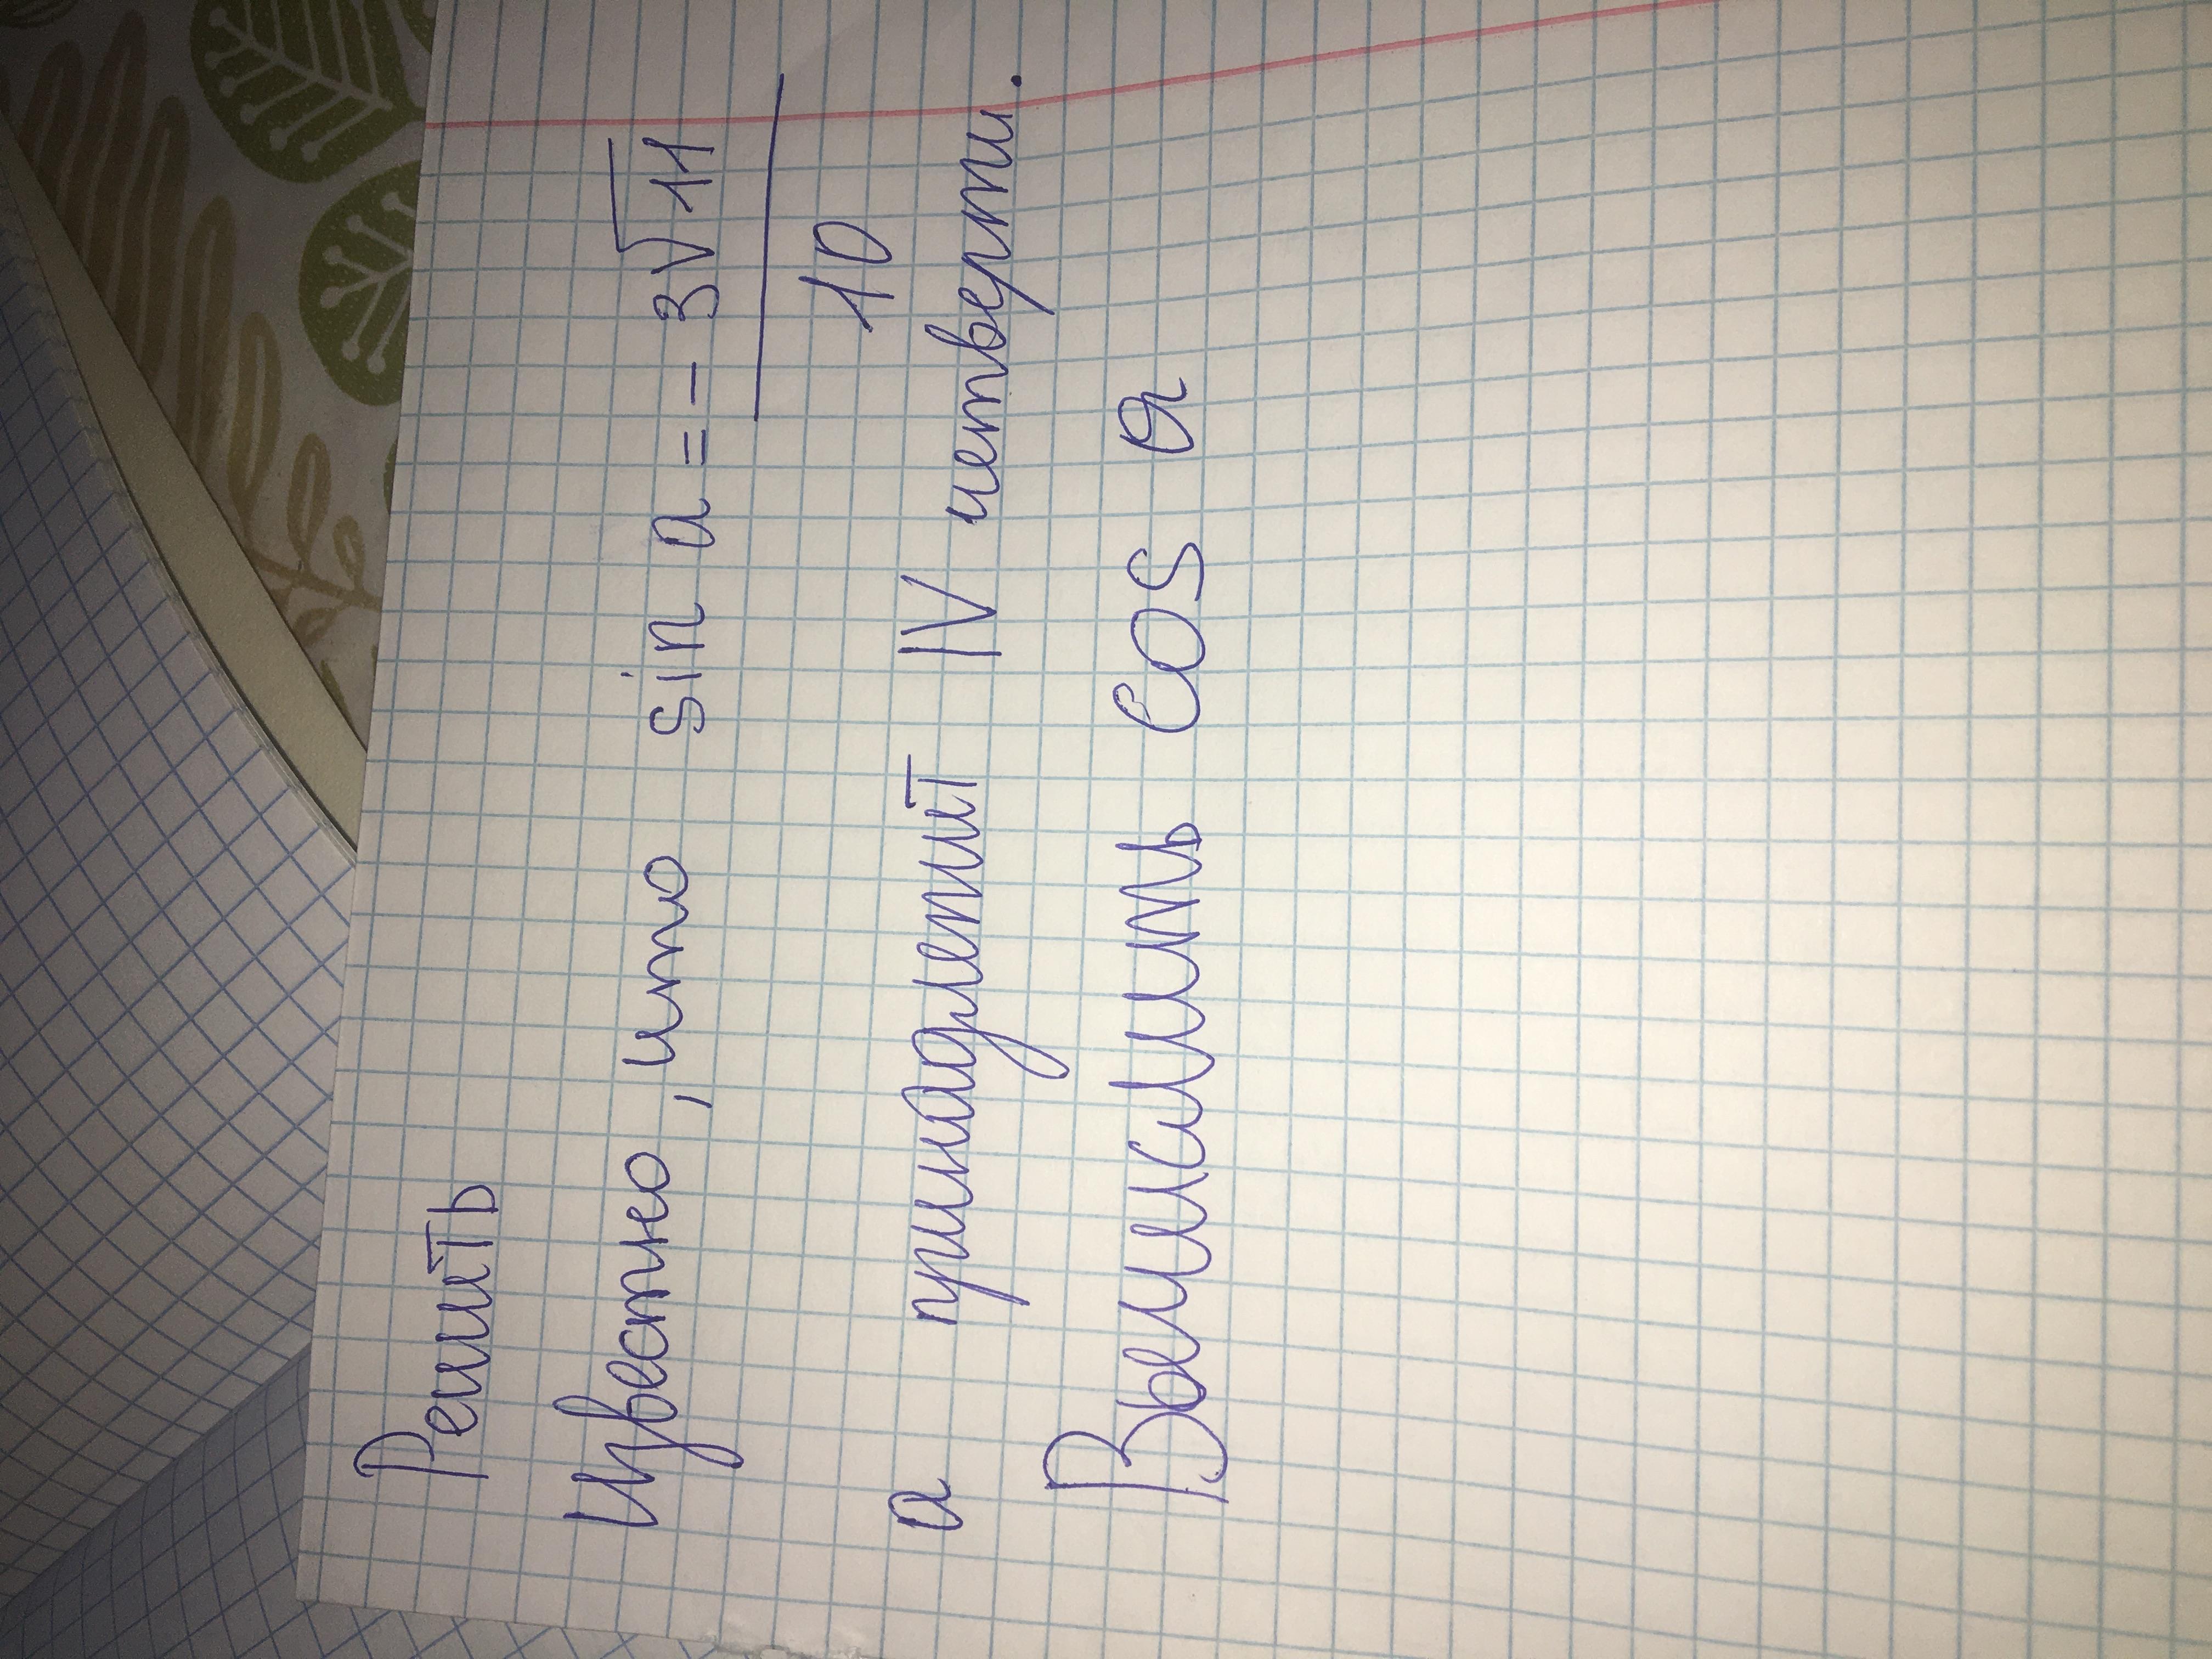 Решить
Известно, что sin a = - 3√11
10
а принадлетит IV четверти.
Вычислить cos a